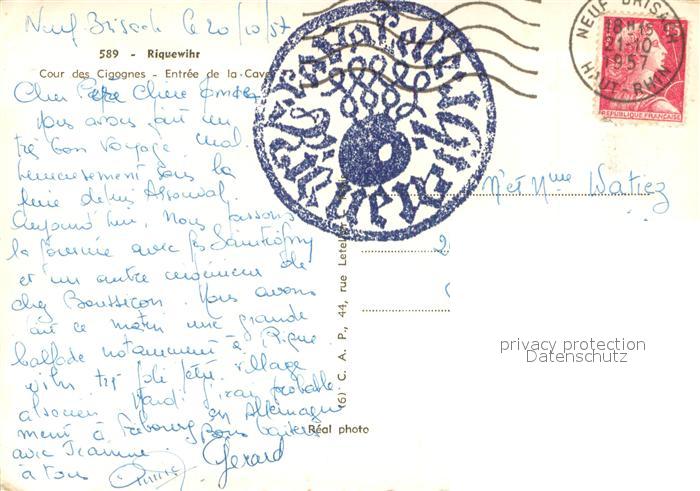 Neuf-Brisach le 20/10/57
589 - Riquewihr
Cour des Cigognes - Entrée de la Cave
Cher Père Chère
Nous avons fait un
très bon voyage mal-
heureusement sous la
pluie depuis
Aujourd'hui, nous passons
la journée avec les
et un autre ingénieur de
chez Boussicon. Nous avons
fait ce matin une grande
ballade notamment à Rique
wihr très joli petit village
alsacien. Mardi j'irai probable
ment à Fribourg en Allemagne
avec Jeanne Bons baisers
à tous Gérard
(6) C. A. P., 44, rue Letellier
Réal photo
NEUF-BRISACH
18H15
21-10
1957
HAUT-RHIN
15F
REPUBLIQUE FRANÇAISE
M et Mme Watiez
privacy protection
Datenschutz